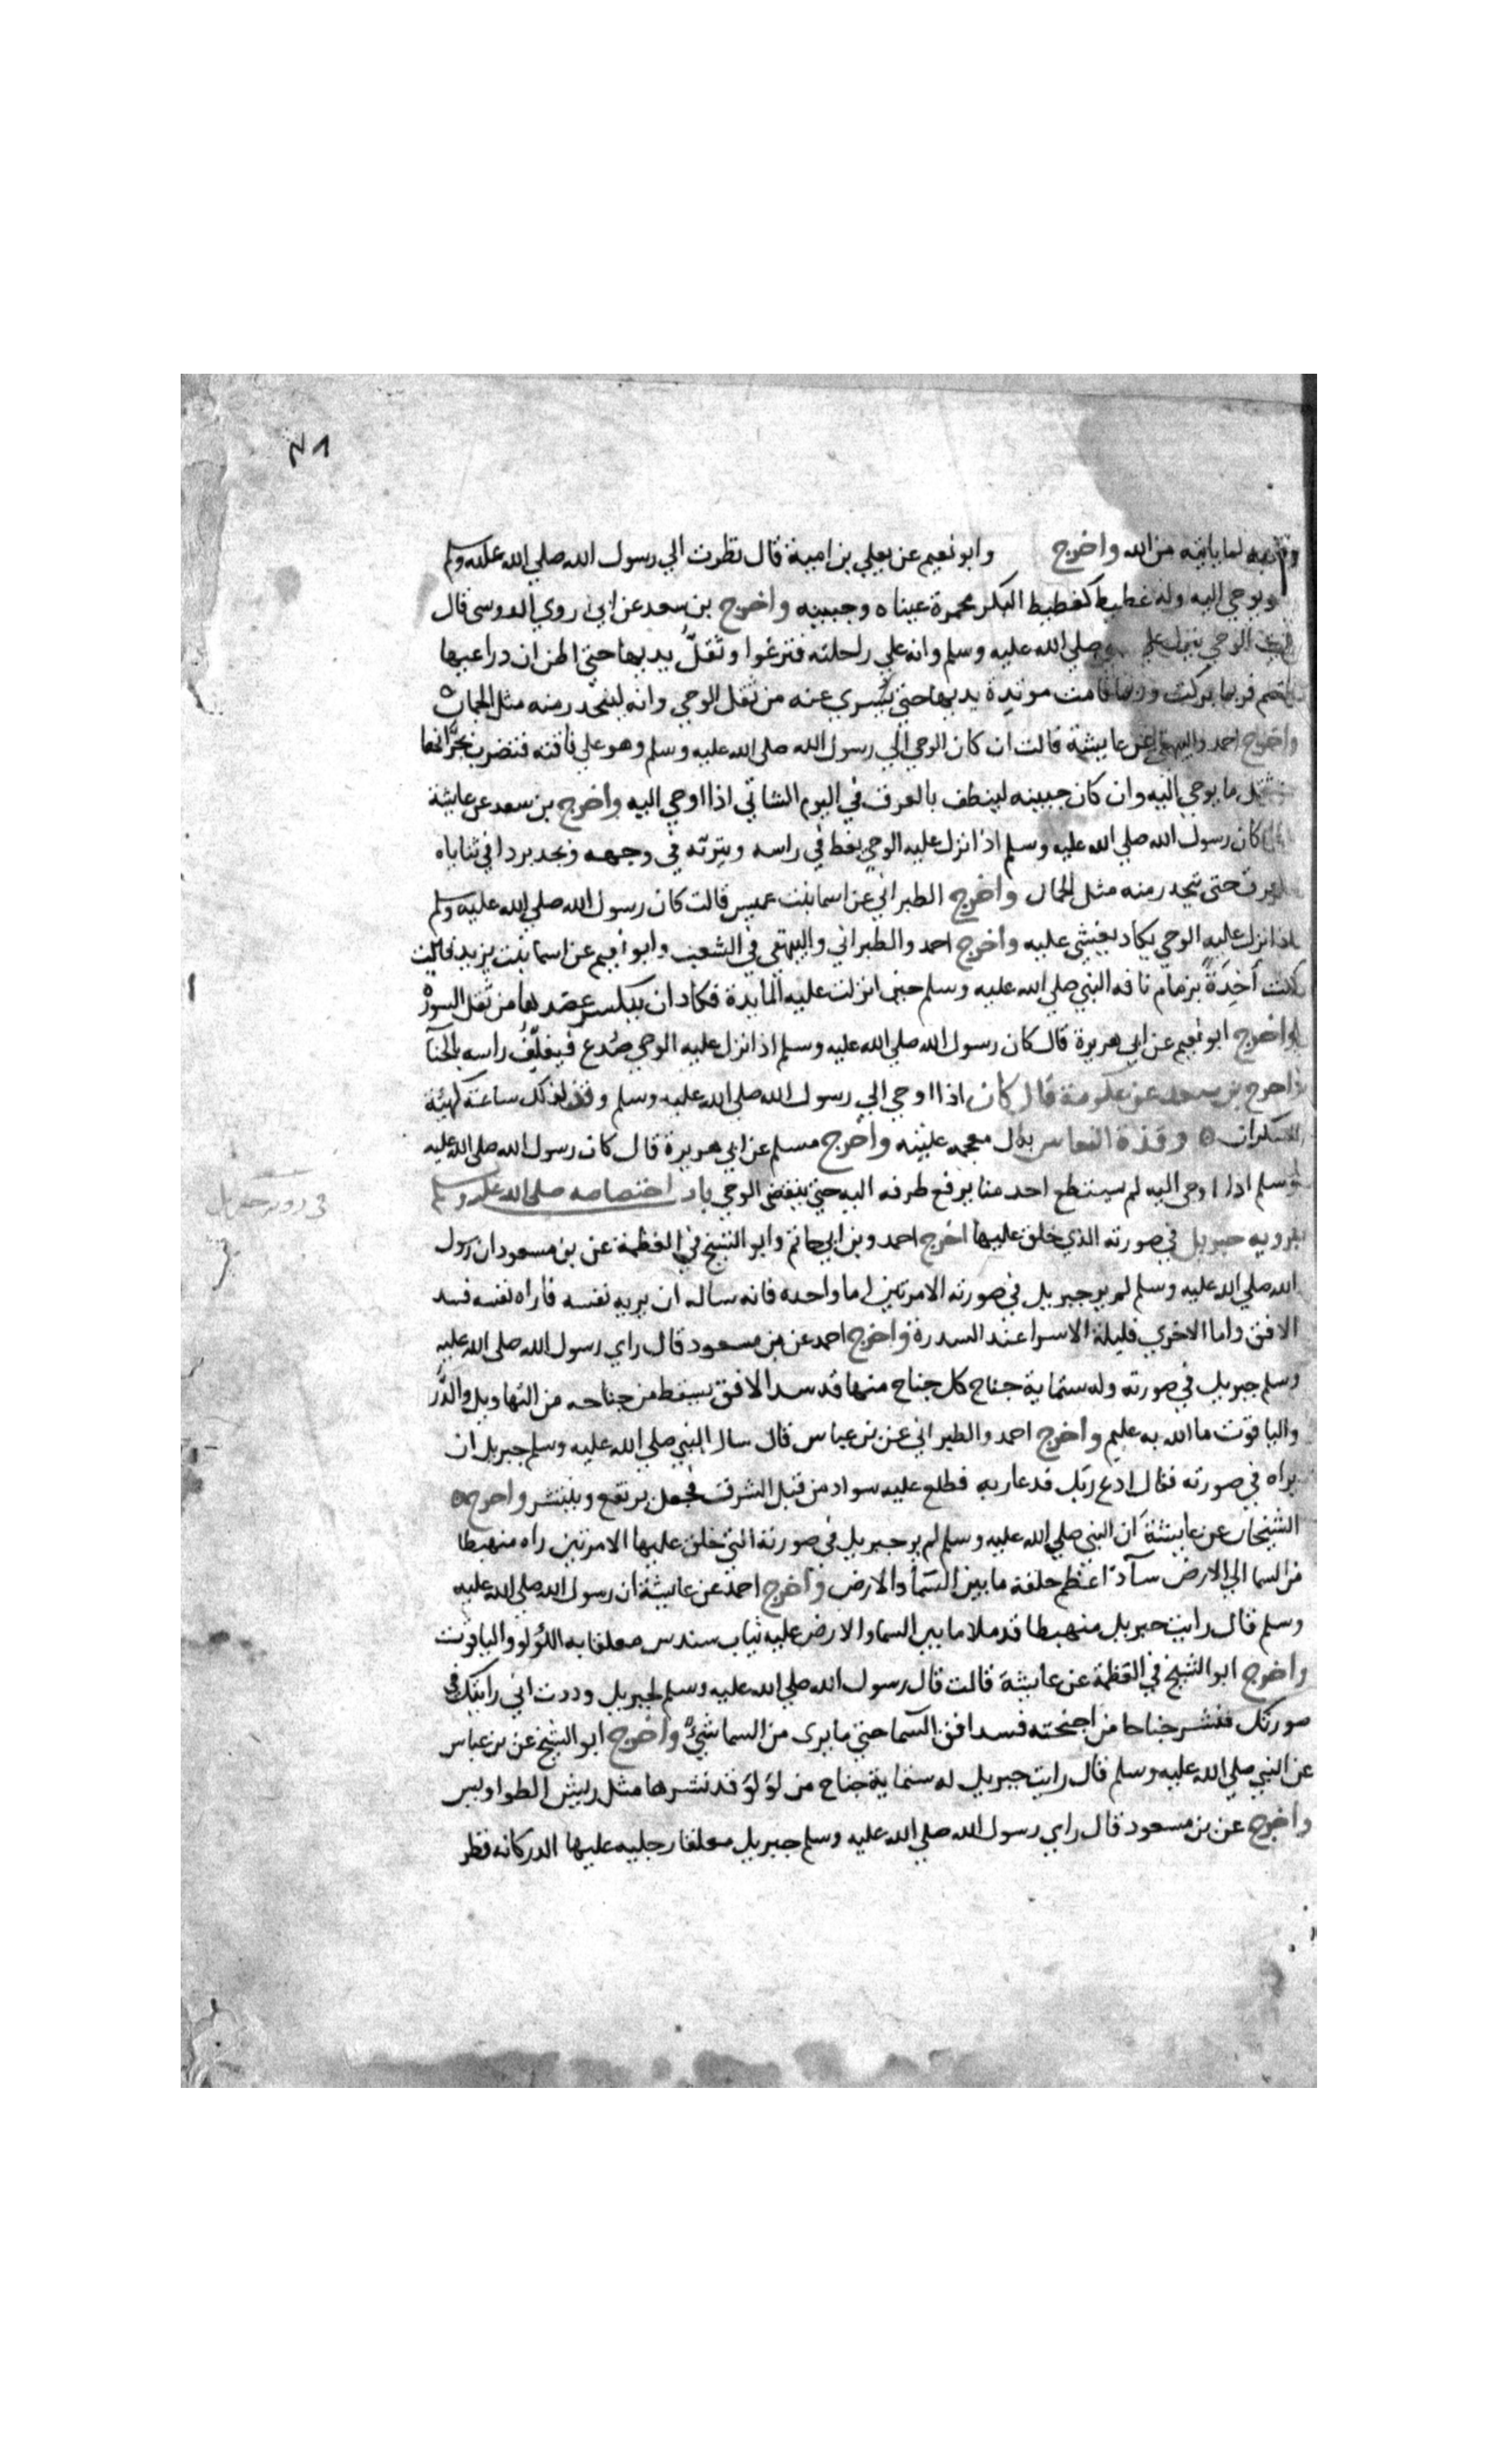 ٧٨
لما ياتيه من الله واخرج وابو نعيم عن يعلي بن امية قال نظرت الي رسول الله صلي الله عليه وسلم
ويوحي اليه وله غطيط كغطيط البكر محمرة عيناه وجبينه واخرج بن سعد عن ابي اروي الدوسي قال
الوحي ينزل علي صلي الله عليه وسلم وانه علي راحلته فترغوا وتفتل يديها حتي اظن ان ذراعيها
تنقصم فربما بركت وربما قامت موتدة يديها حتي يسري عنه من ثقل الوحي وانه ليتحدر منه مثل الجمان
واخرج احمد والبيهقي عن عايشة قالت ان كان الوحي الي رسول الله صلي الله عليه وسلم وهو علي ناقته فتضرب بجرانها
من ثقل ما يوحي اليه وان كان جبينه لينطف بالعرق في اليوم الشاتي اذا اوحي اليه واخرج بن سعد عن عايشة
كان رسول الله صلي الله عليه وسلم اذا نزل عليه الوحي يغط في راسه ويتربد في وجهه ويجد بردا في ثناياه
حتي يتحدر منه مثل الجمان واخرج الطبراني عن اسما بنت عميس قالت كان رسول الله صلي الله عليه وسلم
اذا نزل عليه الوحي يكاد يغشي عليه واخرج احمد والطبراني والبيهقي في الشعب وابو نعيم عن اسما بنت يزيد قالت
كنت اخذة بزمام ناقه النبي صلي الله عليه وسلم حين انزلت عليه المايدة فكاد ان ينكسر عضدها من ثقل السورة
واخرج ابو نعيم عن ابي هريرة قال كان رسول الله صلي الله عليه وسلم اذا نزل عليه الوحي صدع فيغلف راسه بالحنا
واخرج بن سعد عن عكرمة قال كان اذا اوحي الي رسول الله صلي الله عليه وسلم وقذ لذلك ساعة كهيئة
السكران وقذة النعاس بدال معجمه غلبته واخرج مسلم عن ابي هريرة قال كان رسول الله صلي الله عليه
وسلم اذا اوحي اليه لم يستطع احد منا يرفع طرفه اليه حتي ينقضي الوحي باب اختصاصه صلي الله عليه وسلم
بروية جبريل في صورته الذي خلق عليها اخرج احمد وبن ابي حاتم وابو الشيخ في العظمة عن بن مسعود ان رسول
الله صلي الله عليه وسلم لم ير جبريل في صورته الا مرتين اما واحده فانه ساله ان يريه نفسه فاراه نفسه فسد
الافق واما الاخري فليلة الاسرا عند السدرة واخرج احمد عن بن مسعود قال راي رسول الله صلي الله عليه
وسلم جبريل في صورته وله ستماية جناح كل جناح منها قد سد الافق يسقط من جناحه من التهاويل والدر
والياقوت ما الله به عليم واخرج احمد والطبراني عن بن عباس قال سال النبي صلي الله عليه وسلم جبريل ان
يراه في صورته فقال ادع ربك فدعا ربه فطلع عليه سواد من قبل الشرق فجعل يرتفع وينتشر واخرج
الشيخان عن عايشة ان النبي صلي الله عليه وسلم لم ير جبريل في صورته التي خلق عليها الا مرتين راه منهبطا
من السما الي الارض سادا عظم خلقه ما بين السما والارض واخرج احمد عن عايشة ان رسول الله صلي الله عليه
وسلم قال رايت جبريل منهبطا قد ملا ما بين السما والارض عليه ثياب سندس معلقا به اللؤلؤ والياقوت
واخرج ابو الشيخ في العظمة عن عايشة قالت قال رسول الله صلي الله عليه وسلم لجبريل وددت اني رايتك في
صورتك فنشر جناحا من اجنحته فسد افق السما حتي ما يري من السما شيء واخرج ابو الشيخ عن بن عباس
عن النبي صلي الله عليه وسلم قال رايت جبريل له ستماية جناح من لؤلؤ قد نشرها مثل ريش الطواويس
واخرج عن بن مسعود قال راي رسول الله صلي الله عليه وسلم جبريل معلقا رجليه عليها الدر كانه قطر
في روية جبريل